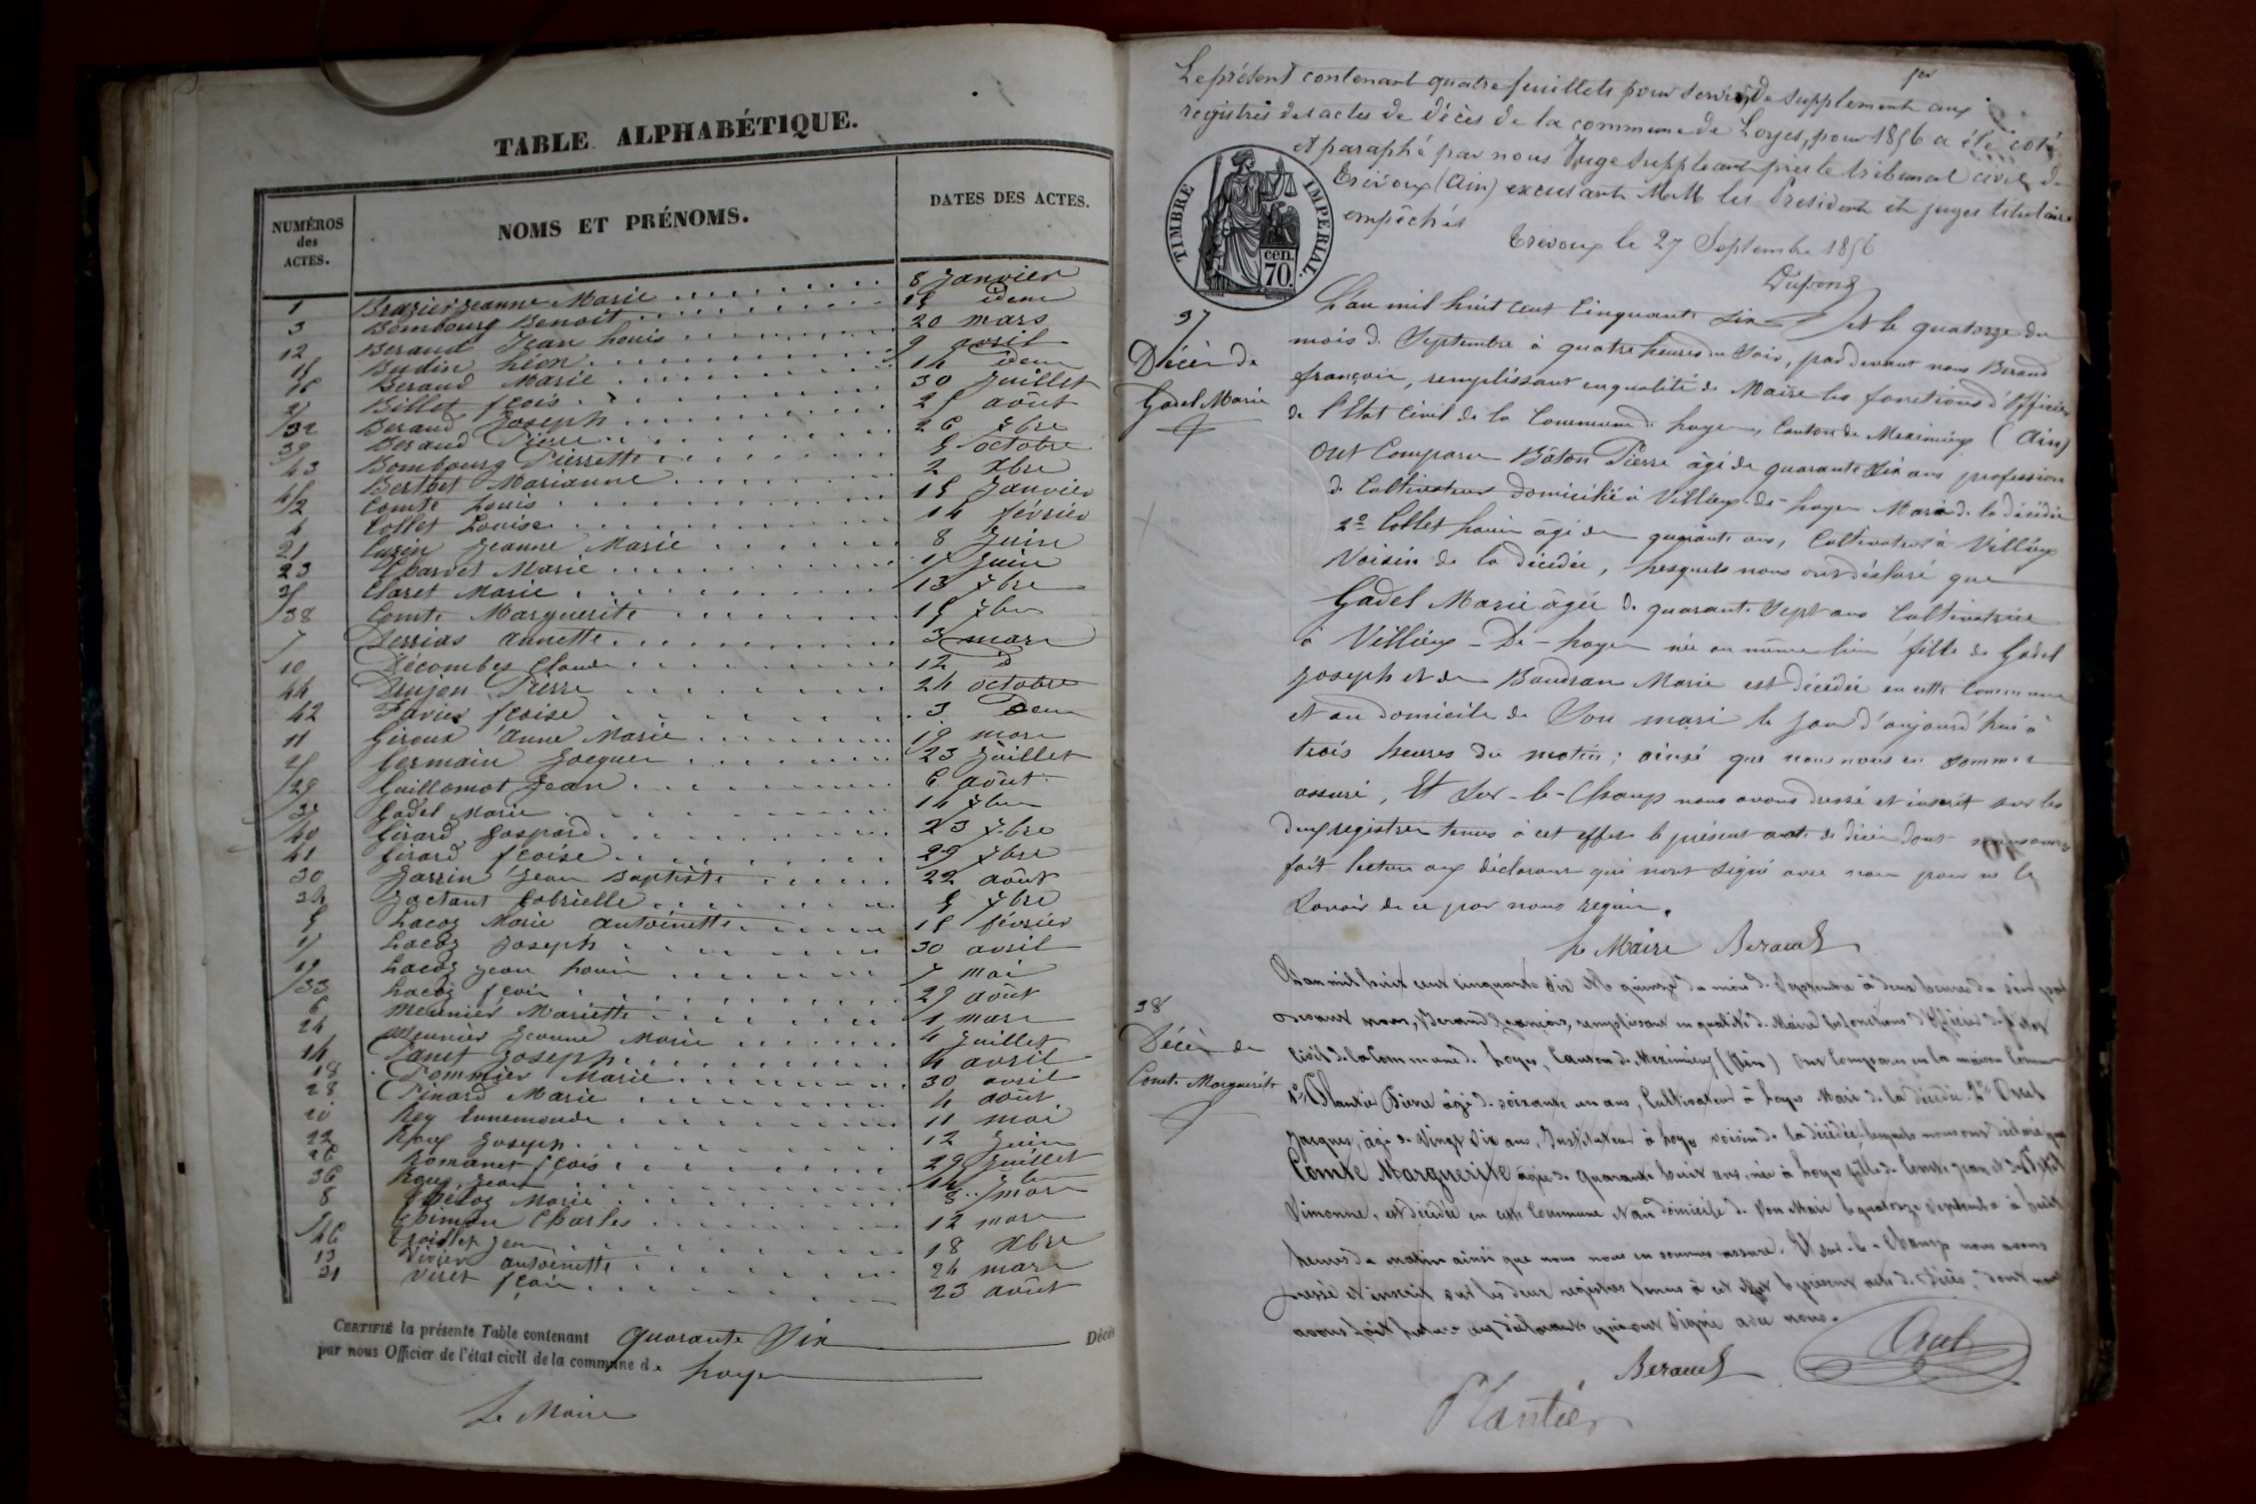 TABLE ALPHABÉTIQUE.
NUMÉROS des ACTES. NOMS ET PRÉNOMS. DATES DES ACTES.
1 Brazier Jeanne Marie 8 Janvier
3 Bombourg Benoît 15 idem
12 Beraud Jean Louis 20 mars
15 Budin Léon 9 avril
16 Beraud Marie 14 idem
27 Billet fçois 30 Juillet
32 Beraud Joseph 25 août
39 Beraud Pierre 26 7bre
43 Bombourg Pierrette 5 octobre
45 Berthet Marianne 2 Xbre
2 Comte Louis 15 Janvier
4 Collet Louise 14 février
21 Cuzin Jeanne Marie 8 Juin
23 Charvet Marie Juin
Claret Marie 13 7bre
38 Comte Marguerite 15 7bre
7 Derrias Annette 3 mars
10 Décombes Claude 12 d
44 Drujon Pierre 24 octobre
42 Favier fçoise 3 idem
11 Giroux Anne Marie 19 mars
25 Germain Jacques 23 Juillet
29 Guillomot Jean 6 août
37 Gadel Marie 14 7bre
40 Girard Gaspard 23 7bre
41 Girard fçoise 29 7bre
30 Jarrin Jean Baptiste 22 août
34 Jactant Gabrielle 5 7bre
5 Lacoz Marie antoinette 15 février
17 Lacoz Joseph 30 avril
19 Lacoz Jean Louis 7 mai
33 Lacoz fçois 29 août
6 Meunier Mariette 1 mars
24 Meunier Jeanne Marie 4 Juillet
14 Panet Joseph 4 avril
18 Pommier Marie 30 avril
28 Pinard Marie 4 août
20 Rey Ennemonde 11 mai
22 Roux Joseph 12 Juin
26 Romanet fçois 29 Juillet
36 Roux Jean 14 7bre
8 Marie 8 mars
9 Charles 12 mars
46 Jean 18 Xbre
13 Vivier antoinette 24 mars
31 Viret fçois 23 août
CERTIFIÉ la présente Table contenant quarante Six Décès
par nous Officier de l'état civil de la commune de Loyes
Le Maire
1er
Le présent contenant quatre feuillets pour servir de supplement aux
registres des actes de décès de la commune de Loyes, pour 1856 a été coté
et paraphé par nous Juge Suppléant près le tribunal civil de
Trévoux (Ain) excusant M.M les President et juges titulaires
empêchés
Trévoux le 27 Septembre 1856
Dupont
TIMBRE IMPERIAL.
cen. 70.
37
Décès de
Gadel Marie
L'an mil huit cent Cinquante Six et le quatorze du
mois de Septembre à quatre heures du Soir, pardevant nous Beraud
françois, remplissant en qualité de Maire les fonctions d'Officier
de l'Etat Civil de la Commune de Loyes, Canton de Meximieux (Ain)
Ont Comparu Bâton Pierre âgé de quarante Six ans profession
de Cultivateur domicilié à Villieux-de-Loyes Mari de la décédée
2° Collet Louis âgé de quarante ans, Cultivateur à Villieux
Voisin de la décédée, Lesquels nous ont déclaré que
Gadel Marie âgée de quarante Sept ans Cultivatrice
à Villieux-De-Loyes née au même lieu fille de Gadel
Joseph et de Baudran Marie est décédée en cette Commune
et au domicile de Son mari le Jour d'aujourd'hui à
trois heures du matin; ainsi que nous nous en sommes
assuré, Et Sur-le-Champ nous avons dressé et inscrit sur les
deux registres tenus à cet effet le présent acte de décès dont nous avons
fait lecture aux déclarans qui n'ont signé avec nous pour ne le
Savoir de ce par nous requis.
Le Maire Beraud
38
Décès de
Comte Marguerite
L'an mil huit cent cinquante Six et le quinze du mois de Septembre à deux heures du Soir par
devant nous, Beraud françois, remplissant en qualité de Maire les fonctions d'Officier de l'état
Civil de la Commune de Loyes, Canton de Meximieux (Ain) Ont Comparu en la maison Commune
1° Plantier Pierre âgé de soixante un ans, Cultivateur à Loyes Mari de la décédée. 2°
Jacques, âgé de Vingt Six ans, Instituteur à Loyes voisin de la décédée lesquels nous ont déclaré que
Comte Marguerite âgée de quarante huit ans, née à Loyes fille de Comte Jean et de
Vimonne, est décédée en cette Commune et au domicile de Son Mari le quatorze Septembre à huit
heures du matin ainsi que nous nous en sommes assuré. Et sur-le-Champ nous avons
dressé et inscrit sur les deux registres tenus à cet effet le présent acte de décès, dont nous
avons fait lecture aux déclarans qui ont Signé avec nous.
Beraud
Plantier